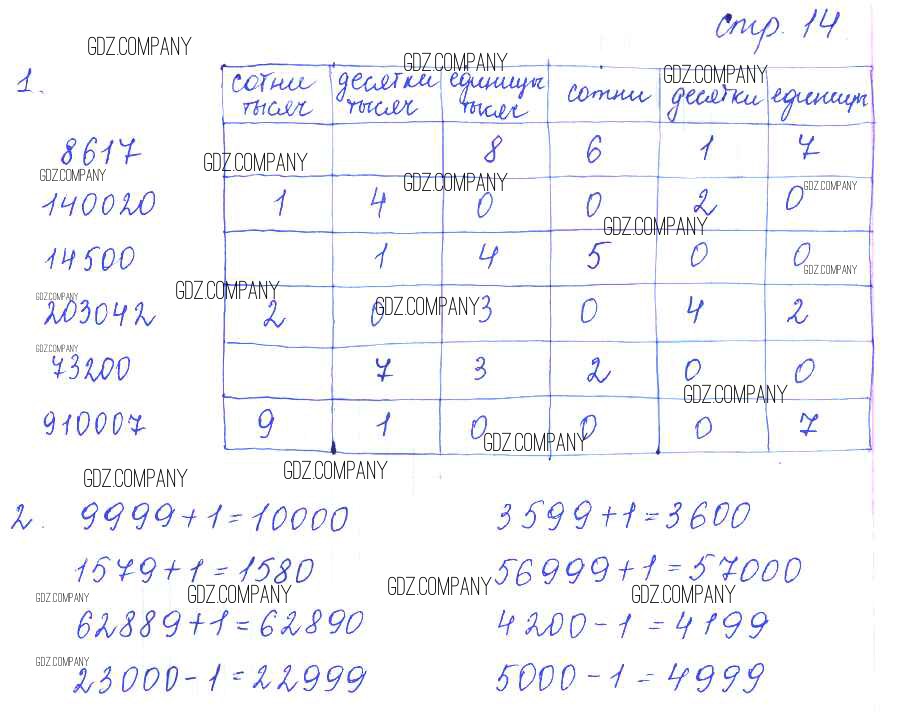 стр. 14
GDZ.COMPANY
GDZ.COMPANY
GDZ.COMPANY
1.
сотни тысяч десятки тысяч единицы тысяч сотни десятки единицы
8617 8 6 1 7
GDZ.COMPANY
GDZ.COMPANY
GDZ.COMPANY
GDZ.COMPANY
140020 1 4 0 0 2 0
GDZ.COMPANY
14500 1 4 5 0 0
GDZ.COMPANY
GDZ.COMPANY
GDZ.COMPANY
GDZ.COMPANY
203042 2 0 3 0 4 2
GDZ.COMPANY
73200 7 3 2 0 0
GDZ.COMPANY
910007 9 1 0 0 0 7
GDZ.COMPANY
GDZ.COMPANY
GDZ.COMPANY
2. 9999+1=10000 3599+1=3600
1579+1=1580 56999+1=57000
GDZ.COMPANY
GDZ.COMPANY
GDZ.COMPANY
GDZ.COMPANY
62889+1=62890 4200-1=4199
GDZ.COMPANY
23000-1=22999 5000-1=4999